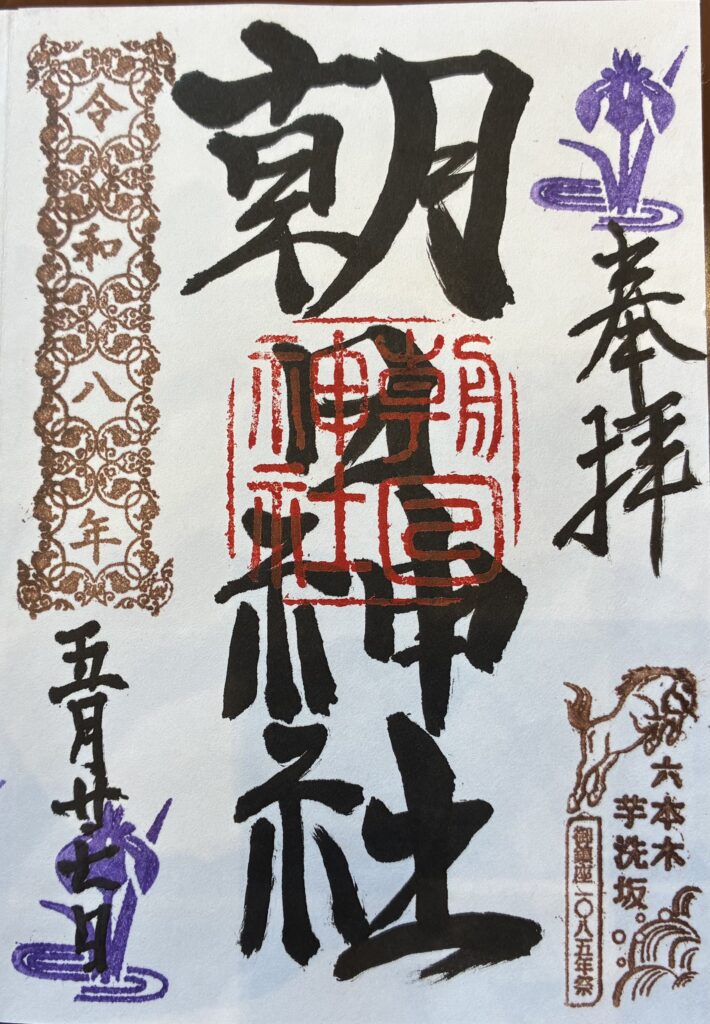 奉拝
六本木
芋洗坂
御鎮座一〇八五年祭
朝日神社
朝日
神社
令和八年
五月廿七日